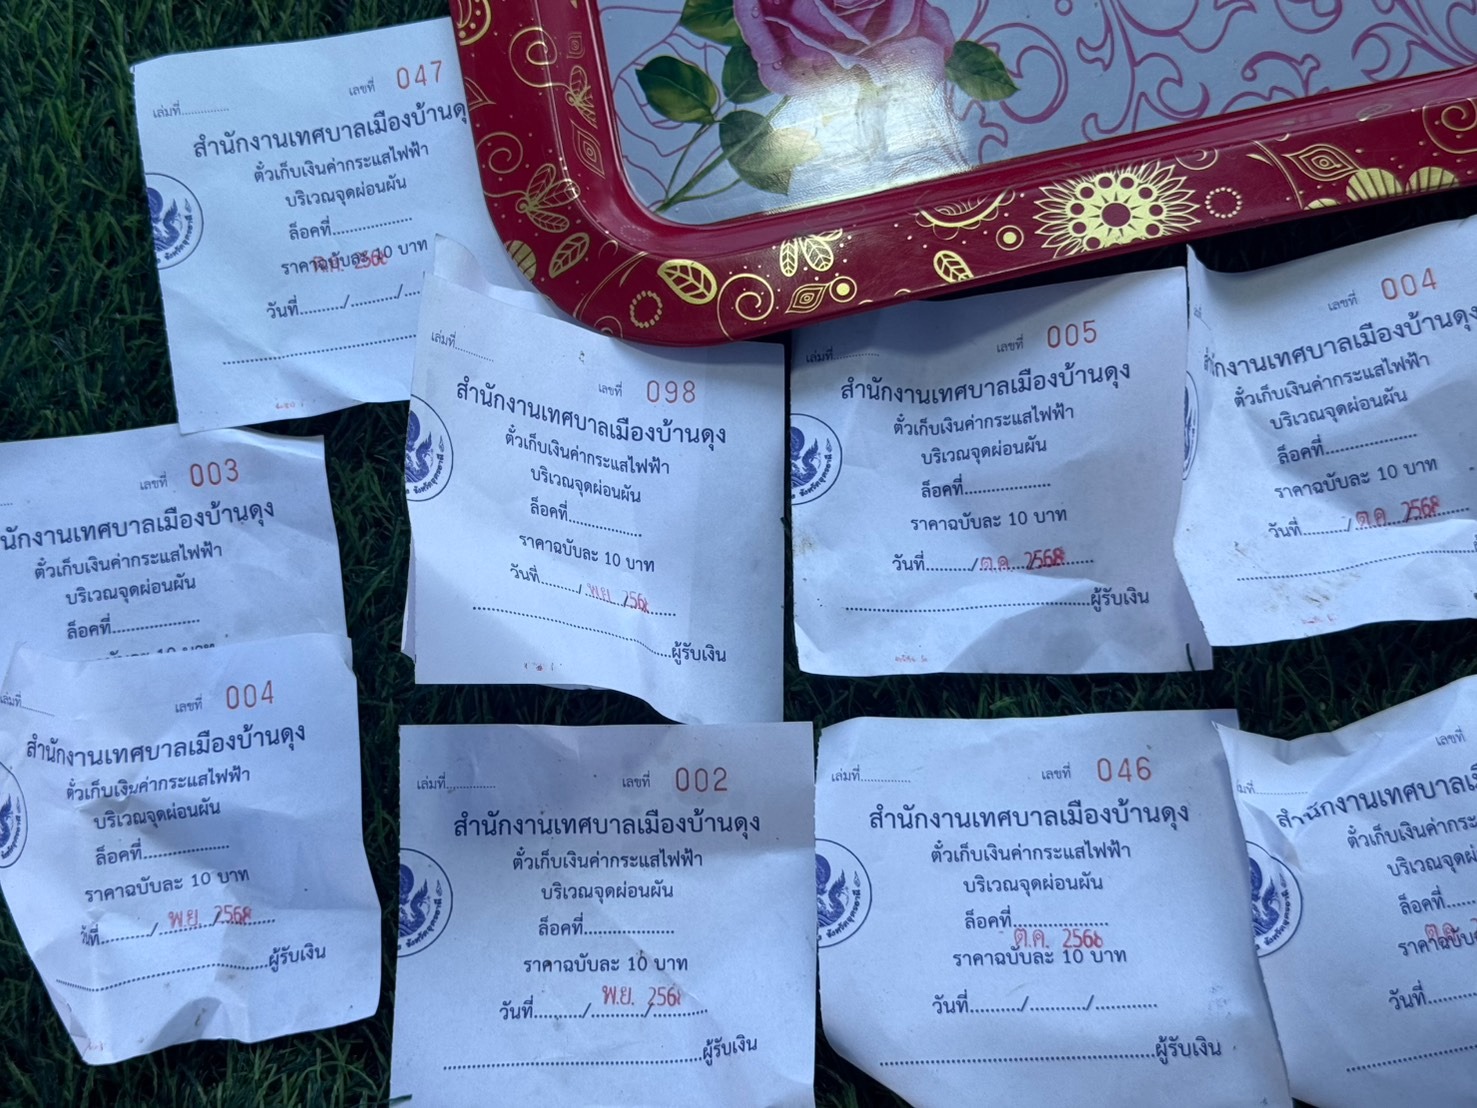 เล่มที่.............. เลขที่ 047
สำนักงานเทศบาลเมืองบ้านดุ
ตั๋วเก็บเงินค่ากระแสไฟฟ้า
บริเวณจุดผ่อนผัน
ล็อคที่...................
ราคาฉบับละ 10 บาท
วันที่........../........../...
เล่มที่............ เลขที่ 098
สำนักงานเทศบาลเมืองบ้านดุง
ตั๋วเก็บเงินค่ากระแสไฟฟ้า
บริเวณจุดผ่อนผัน
ล็อคที่...................
ราคาฉบับละ 10 บาท
วันที่........./ พ.ย. /256
ผู้รับเงิน
จังหวัดอุดรธานี
เล่มที่.............. เลขที่ 005
สำนักงานเทศบาลเมืองบ้านดุง
ตั๋วเก็บเงินค่ากระแสไฟฟ้า
บริเวณจุดผ่อนผัน
ล็อคที่......................
ราคาฉบับละ 10 บาท
วันที่........../ต.ค. 2568
ผู้รับเงิน
จังหวัดอุดรธานี
เลขที่ 004
งานเทศบาลเมืองบ้านดุง
ตั๋วเก็บเงินค่ากระแสไฟฟ้า
บริเวณจุดผ่อนผัน
ล็อคที่......................
ราคาฉบับละ 10 บาท
วันที่........../ต.ค. 2568
เลขที่ 003
นักงานเทศบาลเมืองบ้านดุง
ตั๋วเก็บเงินค่ากระแสไฟฟ้า
บริเวณจุดผ่อนผัน
ล็อคที่......................
เล่มที่....... เลขที่ 004
สำนักงานเทศบาลเมืองบ้านดุง
ตั๋วเก็บเงินค่ากระแสไฟฟ้า
บริเวณจุดผ่อนผัน
ล็อคที่......................
ราคาฉบับละ 10 บาท
วันที่........../ พ.ย. 2568
ผู้รับเงิน
เล่มที่.............. เลขที่ 002
สำนักงานเทศบาลเมืองบ้านดุง
ตั๋วเก็บเงินค่ากระแสไฟฟ้า
บริเวณจุดผ่อนผัน
ล็อคที่......................
ราคาฉบับละ 10 บาท
พ.ย. 256
วันที่........../........../............
ผู้รับเงิน
จังหวัดอุดรธานี
เล่มที่.............. เลขที่ 046
สำนักงานเทศบาลเมืองบ้านดุง
ตั๋วเก็บเงินค่ากระแสไฟฟ้า
บริเวณจุดผ่อนผัน
ล็อคที่......................
ต.ค. 256
ราคาฉบับละ 10 บาท
วันที่........../........../............
ผู้รับเงิน
เลขที่
สำนักงานเทศบาลเมือง
ตั๋วเก็บเงินค่ากระแส
บริเวณจุดผ่อน
ล็อคที่.......
ราคาฉบับ
วันที่........../
จังหวัดอุดรธานี